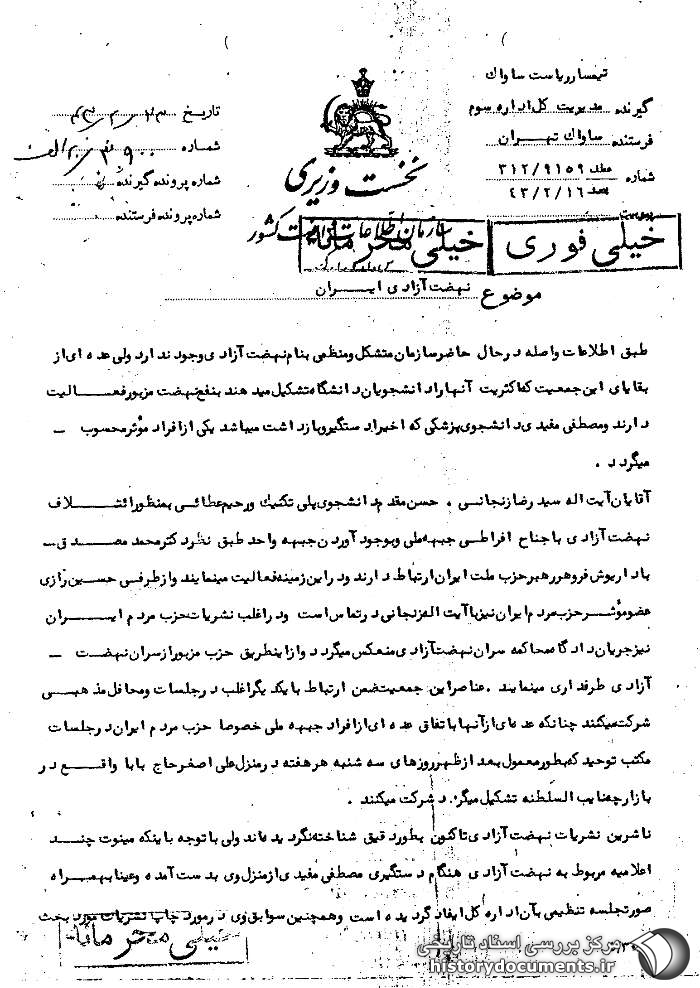 تیمسار ریاست ساواک
گیرنده مدیریت کل اداره سوم
فرستنده ساواک تهران
شماره ۳۱۲/۹۱۵۹
۴۳/۲/۱۶
تاریخ
شماره
شماره پرونده گیرنده
شماره پرونده فرستنده
نخست وزیری
سازمان اطلاعات و امنیت کشور
خیلی محرمانه
خیلی فوری
موضوع نهضت آزادی ایران
طبق اطلاعات واصله در حال حاضر سازمان متشکل و منظمی بنام نهضت آزادی وجود ندارد ولی عده ای از
بقایای این جمعیت که اکثریت آنها را دانشجویان دانشگاه تشکیل میدهند بنفع نهضت مزبور فعالیت
دارند و مصطفی مفیدی دانشجوی پزشکی که اخیرا دستگیر و بازداشت میباشد یکی از افراد مؤثر محسوب –
میگردد .
آقایان آیت اله سید رضا زنجانی ، حسن مقدم دانشجوی پلی تکنیک و رحیم عطائی بمنظور ائتلاف
نهضت آزادی با جناح افراطی جبهه ملی و بوجود آوردن جبهه واحد طبق نظر دکتر محمد مصدق –
با داریوش فروهر رهبر حزب ملت ایران ارتباط دارند و در این زمینه فعالیت مینمایند و از طرفی حسین رازی
عضو مؤثر حزب مردم ایران نیز با آیت اله زنجانی در تماس است و در اغلب نشریات حزب مردم ایران
نیز جریان دادگاه محاکمه سران نهضت آزادی منعکس میگردد و از اینطریق حزب مزبور از سران نهضت –
آزادی طرفداری مینمایند . عناصر این جمعیت ضمن ارتباط با یکدیگر اغلب در جلسات و محافل مذهبی
شرکت میکنند چنانکه عده ای از آنها باتفاق عده ای از افراد جبهه ملی خصوصا حزب مردم ایران در جلسات
مکتب توحید که بطور معمول بعد از ظهر روزهای سه شنبه هر هفته در منزل علی اصغر حاج بابا واقع در
بازارچه نایب السلطنه تشکیل میگردد شرکت میکنند .
ناشرین نشریات نهضت آزادی تاکنون بطور دقیق شناخته نگردیده اند ولی با توجه باینکه مینوت چند
اعلامیه مربوط به نهضت آزادی هنگام دستگیری مصطفی مفیدی از منزل وی بدست آمده و عینا بهمراه
صورتجلسه تنظیمی بآن اداره کل ایفاد گردیده است و همچنین سوابق وی در مورد چاپ نشریات مورد بحث
خیلی محرمانه
مرکز بررسی اسناد تاریخی
historydocuments.ir